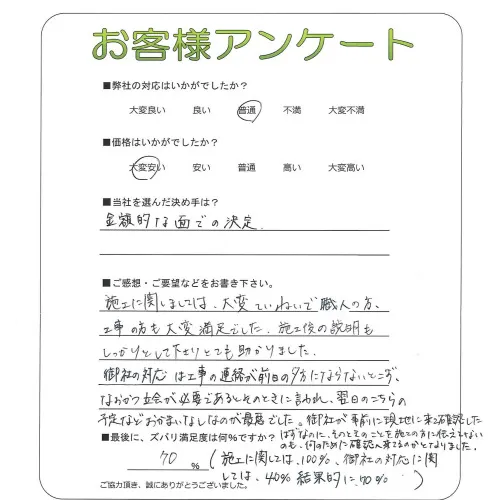 お客様アンケート
■弊社の対応はいかがでしたか?
大変良い 良い 普通 不満 大変不満
■価格はいかがでしたか?
大変安い 安い 普通 高い 大変高い
■当社を選んだ決め手は?
金額的な面での決定.
■ご感想・ご要望などをお書き下さい。
施工に関しましては、大変ていねいで職人の方、
工事の方も大変満足でした. 施工後の説明も
しっかりとして下さりとても助かりました.
御社の対応は工事の連絡が前日の夕方にならないとこず、
なおかつ立会が必要であるとそのときに言われ、翌日のこちらの
予定などおかまいなしなのが最悪でした。御社が事前に現地に来て確認した
はずなのに、そのときのことを施工の方に伝えてない
のも、何のために確認に来てるのかとなりました.
■最後に、ズバリ満足度は何%ですか?
70 %
(施工に関しては、100%、御社の対応に関
しては、40% 結果的に70%)
ご協力頂き、誠にありがとうございました。